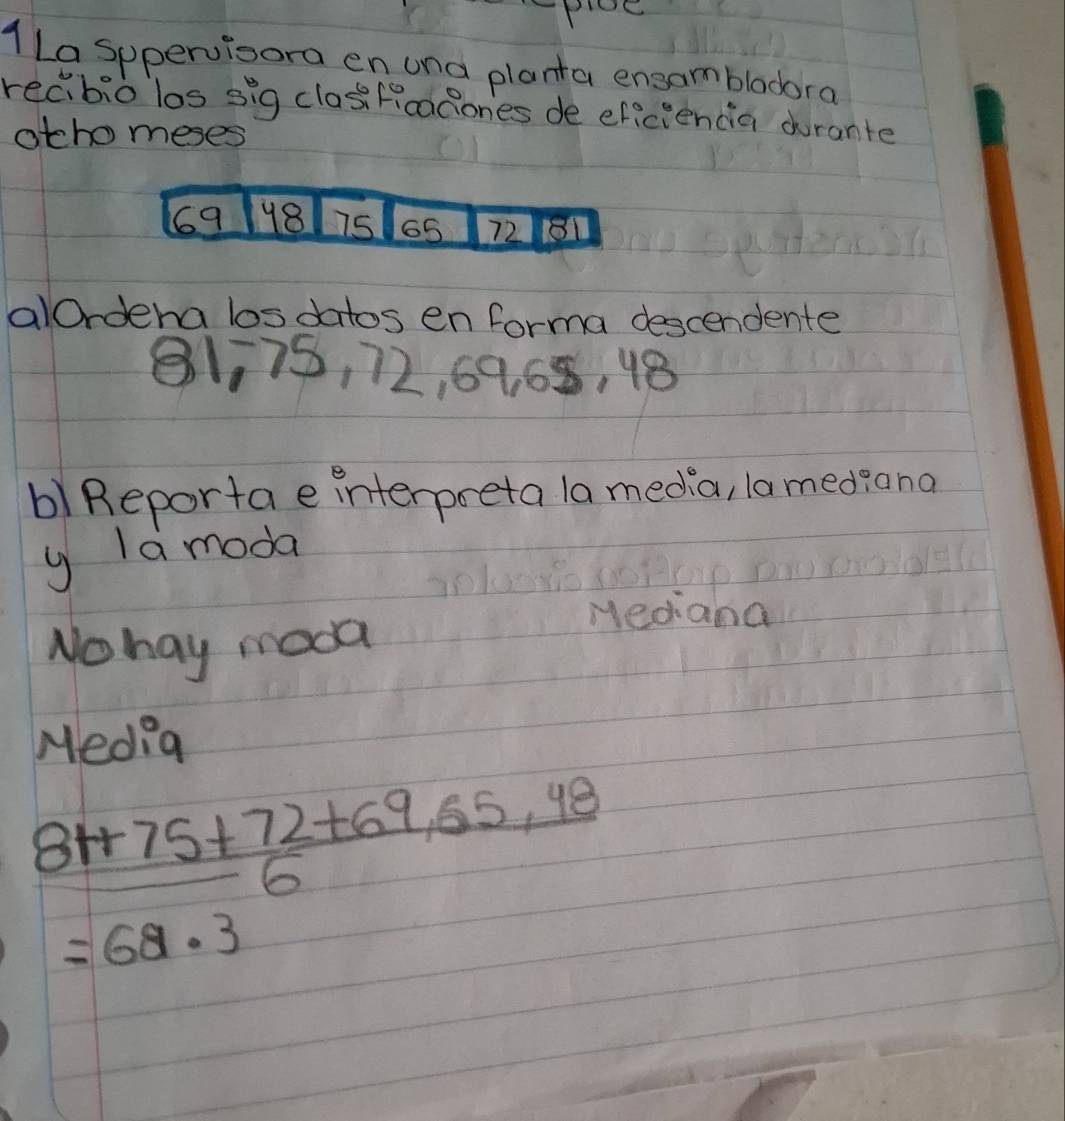 1 La suppervisora en una planta ensambladora
recibio los sig clasificaciones de eficiencia durante
otcho meses
69 48 75 65 72 81
a) Ordena los datos en forma descendente
81, 75, 72, 69, 65, 48
b) Reporta e interpreta la media, la mediana
y la moda
No hay moda
Mediana
Media
81+75+72+69,65,48
6
= 68.3